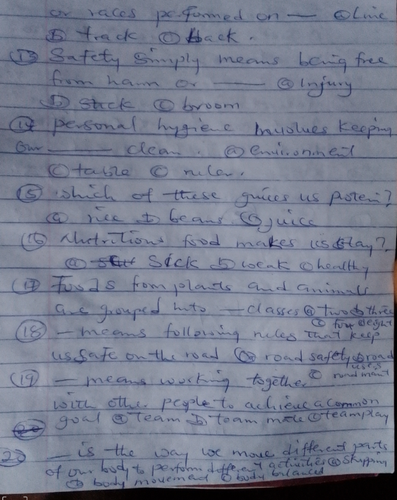 or races performed on — ⓐ line
ⓑ track ⓒ back.
⑬ Safety simply means being free
from harm or —— ⓐ Injury
ⓑ stick ⓒ broom
⑭ personal hygiene Involves keeping
our —— clean. ⓐ environment
ⓒ table ⓒ ruler.
⑮ which of these gives us protein?
ⓐ rice ⓑ beans ⓒ juice
⑯ Nutritious food makes us stay?
ⓐ sick ⓑ weak ⓒ healthy
⑰ foods from plants and animals
are grouped into — classes ⓐ two ⓑ three
ⓒ eight
⑱ — means following rules that keep
us safe on the road ⓐ road safety ⓑ road
ⓒ road
⑲ — means working together
with other people to achieve a common
goal ⓐ team ⓑ team mate ⓒ team play
— is the way we move different parts
of our body to perform different activities ⓐ skipping
ⓑ body movement body balance